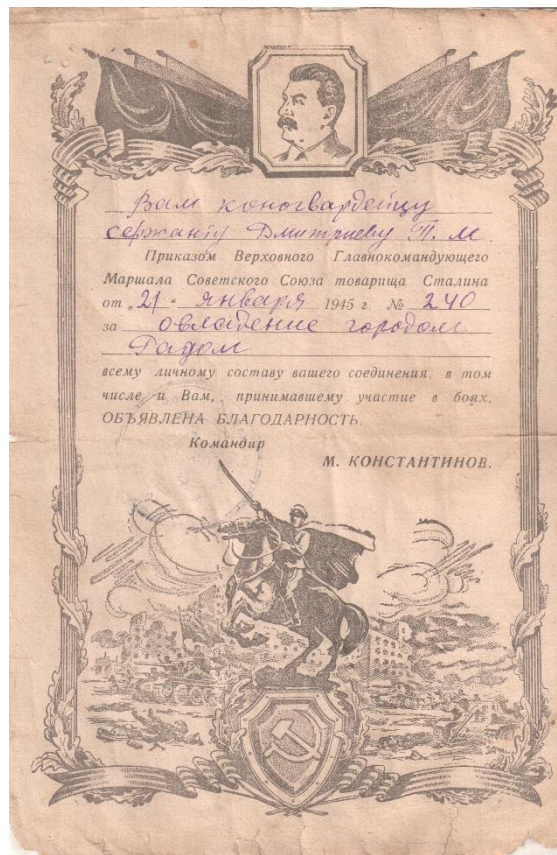 Вам коногвардейцу
сержанту Дмитриеву П. М.
Приказом Верховного Главнокомандующего
Маршала Советского Союза товарища Сталина
от „21“ января 1945 г. № 240
за овладение городом
Радом
всему личному составу вашего соединения, в том
числе и Вам, принимавшему участие в боях,
ОБЪЯВЛЕНА БЛАГОДАРНОСТЬ.
Командир
М. КОНСТАНТИНОВ.